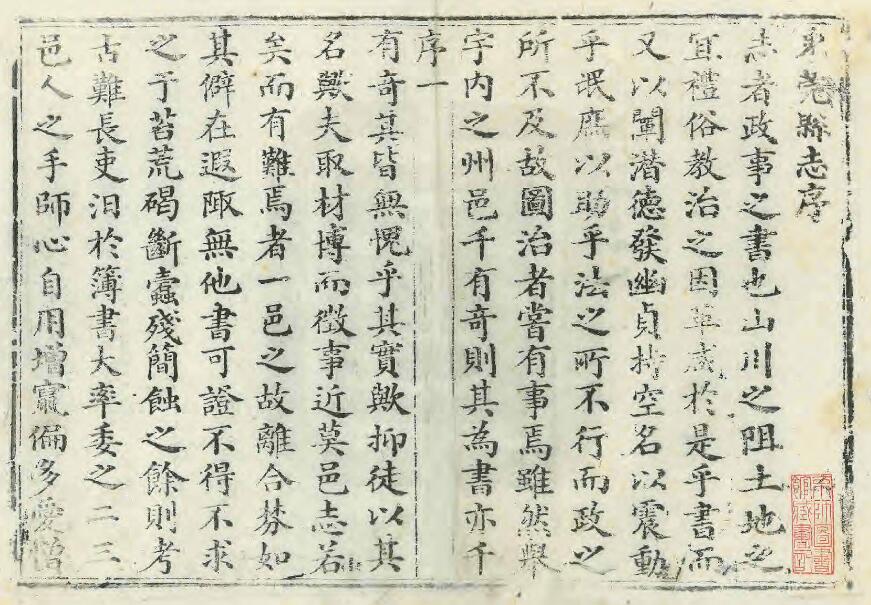 東莞縣志序
志者政事之書也山川之阻土地之
宜禮俗教治之因革咸於是乎書而
又以闡潜德發幽貞空名以震動
乎氓庶以助乎法之所不行而政之
所不及故圖治者嘗有事焉雖然舉
宇内之州邑千有奇則其為書亦千
序一
有奇其皆無愧乎其實歟抑徒以其
名歟夫取材博而徵事近莫邑志若
矣而有難焉者一邑之故離合棼如
其僻在遐陬無他書可證不得不求
之于苔荒碣斷蠹殘簡蝕之餘則考
古難長吏汨於簿書大率委之二三
邑人之手師心自用增竄偏多愛憎